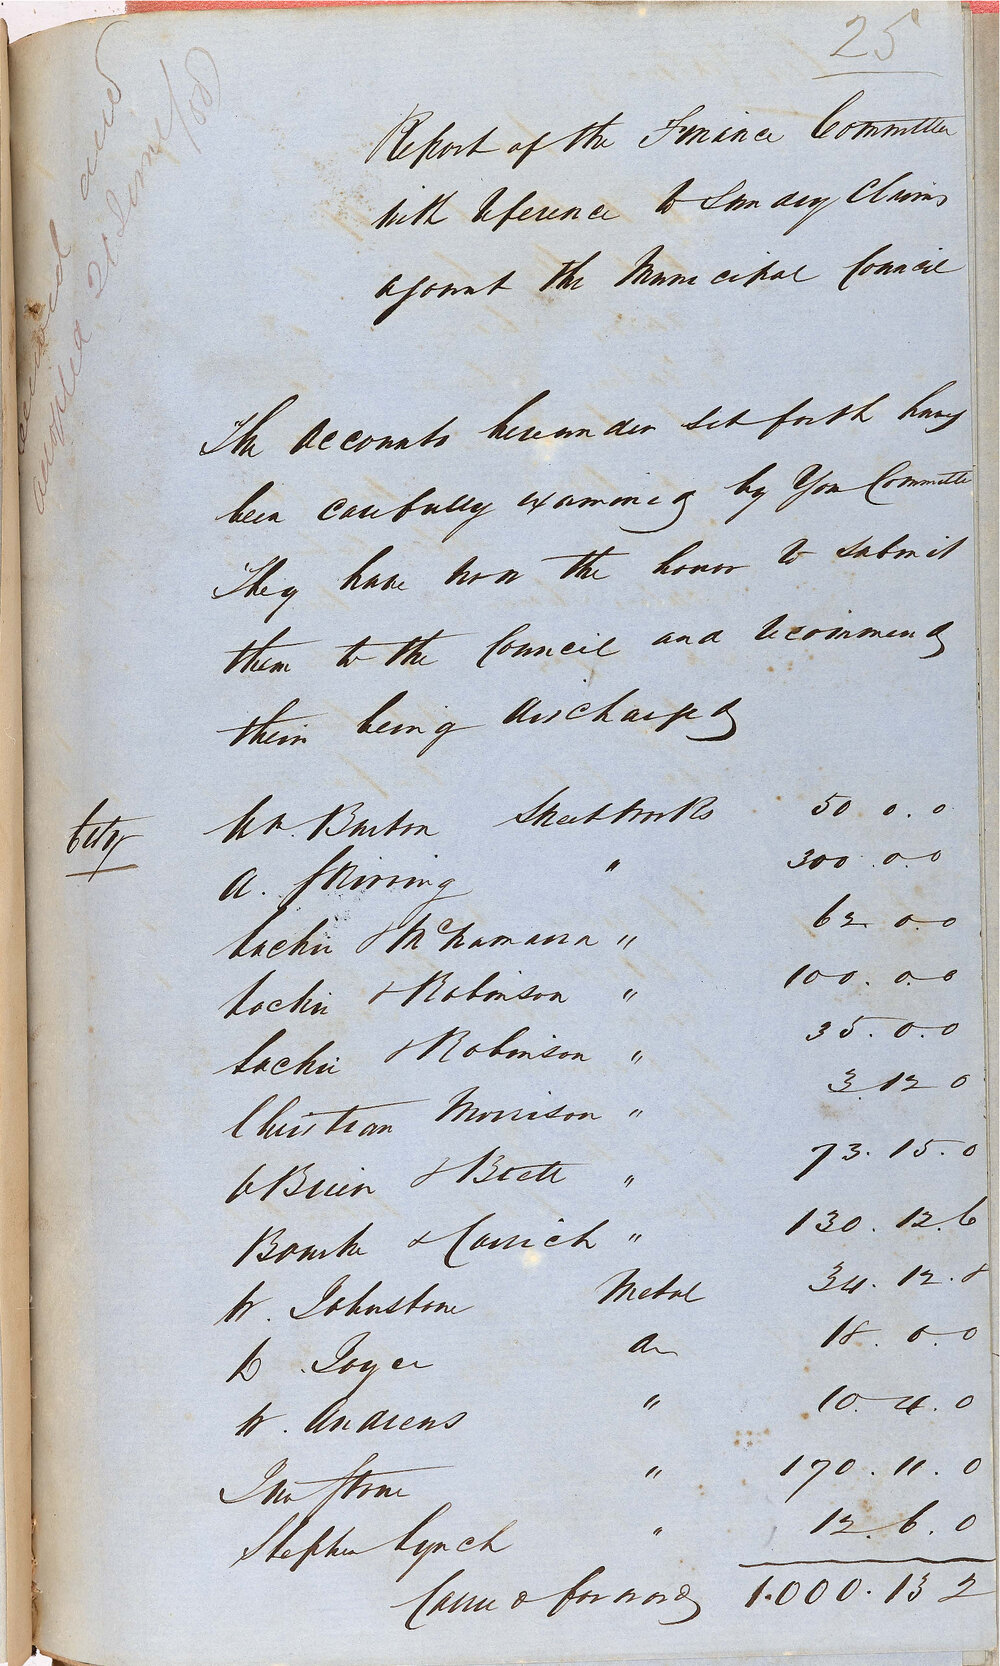 25
adopted 21 June /58
Report of the Finance Committee
with reference to Sundry Claims
against the Municipal Council
The Accounts hereunder set forth having
been carefully examined by Your Committee
They have now the honor to submit
them to the Council and recommend
their being discharged
City
Wm. Burton Street Works 50 0.0
A. Skirving " 300.0.0
Lachie & McNamara " 62 0.0
Lochie & Robinson " 100.0.0
Lachie & Robinson " 35.0.0
Christian Morrison " 3 12 0
OBrien & Brett " 73.15.0
Bourke & Carrick " 130.12.6
W. Johnstone Metal 34.12.8
D Joyce Do 18.0.0
W. Andrews " 10.4.0
Jno Stone " 170.11.0
Stephen Lynch " 12.6.0
Carried forward 1.000.13 2